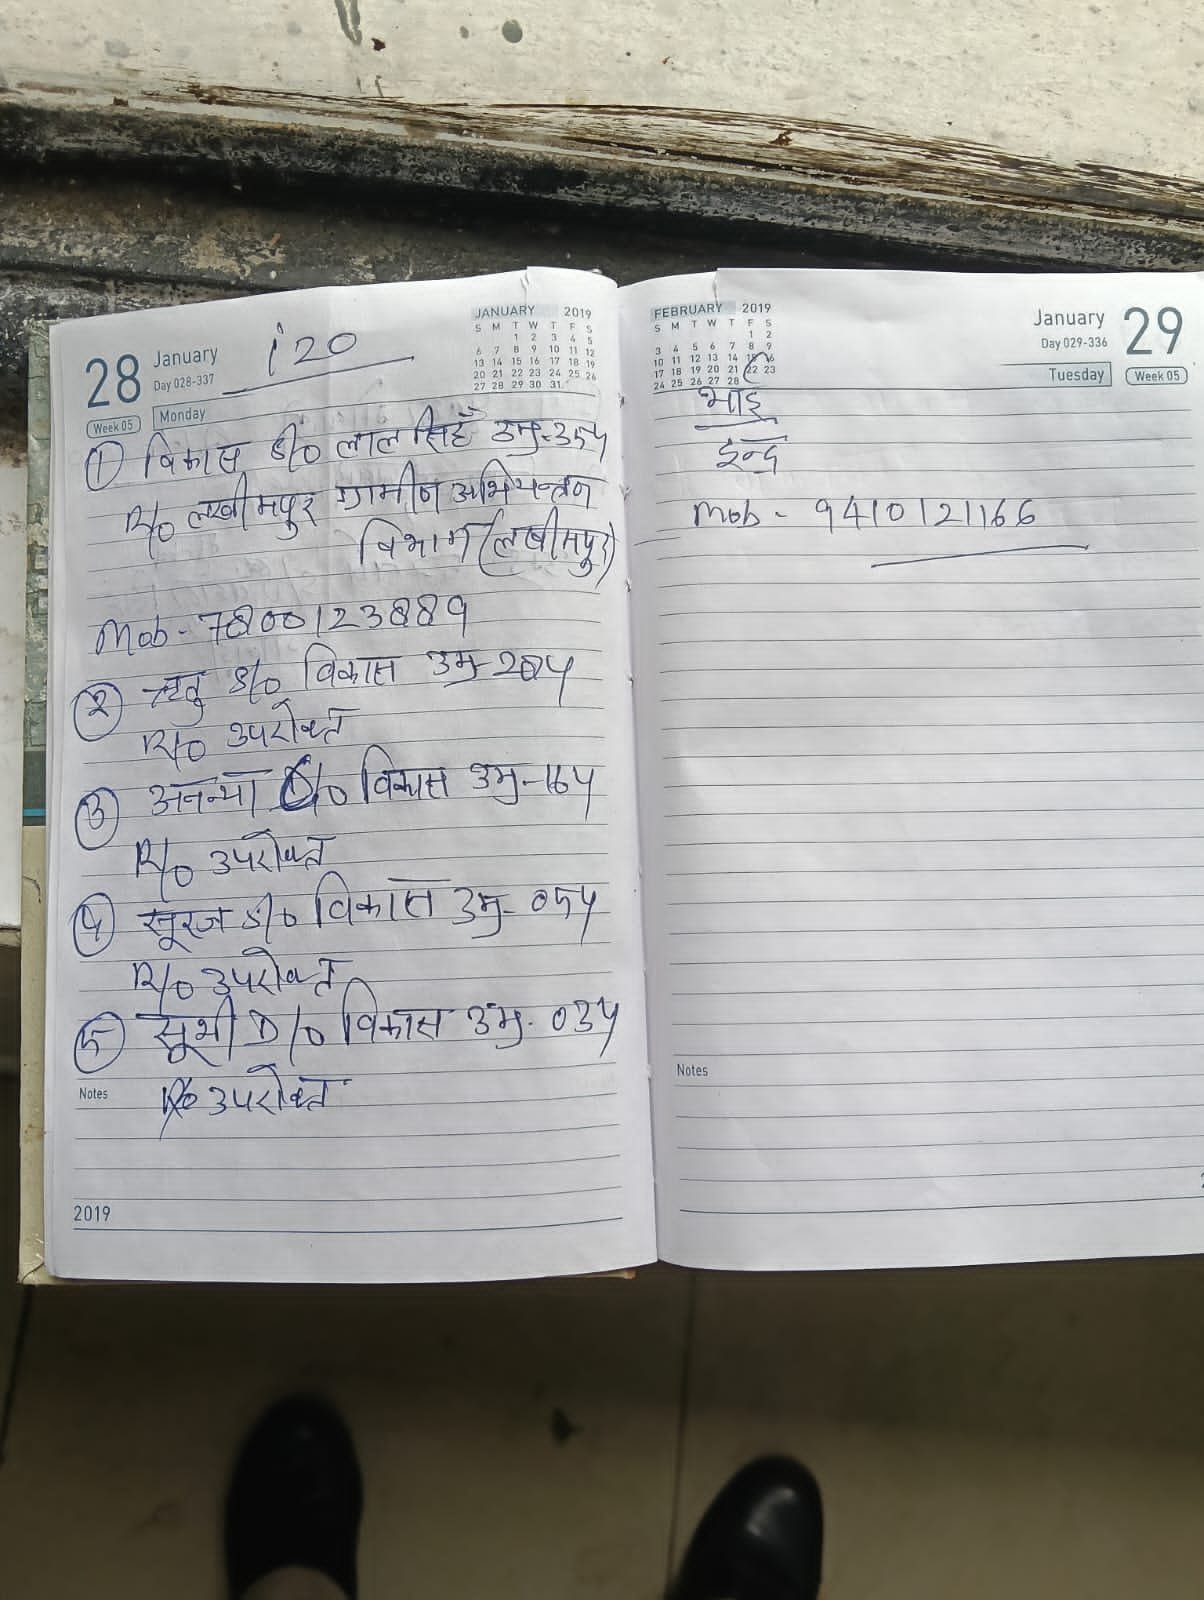 28 January
Day 028-337
Week 05
Monday
i20
JANUARY 2019
S M T W T F S
1 2 3 4 5
6 7 8 9 10 11 12
13 14 15 16 17 18 19
20 21 22 23 24 25 26
27 28 29 30 31
① विकास S/o लाल सिहँ उम्र-35y
R/o लखीमपुर ग्रामीण अभियन्त्रण
विभाग (लखीमपुर)
Mob - 7800123889
② S/o विकास उम्र-
R/o उपरोक्त
③ अनन्या D/o विकास उम्र-16y
R/o उपरोक्त
④ सूरज S/o विकास उम्र- 05y
R/o उपरोक्त
⑤ सूभी D/o विकास उम्र- 03y
Notes
R/o उपरोक्त
2019
FEBRUARY 2019
S M T W T F S
1 2
3 4 5 6 7 8 9
10 11 12 13 14 15 16
17 18 19 20 21 22 23
24 25 26 27 28
January 29
Day 029-336
Tuesday
Week 05
भाई
इन्द्र
Mob - 9410121166
Notes